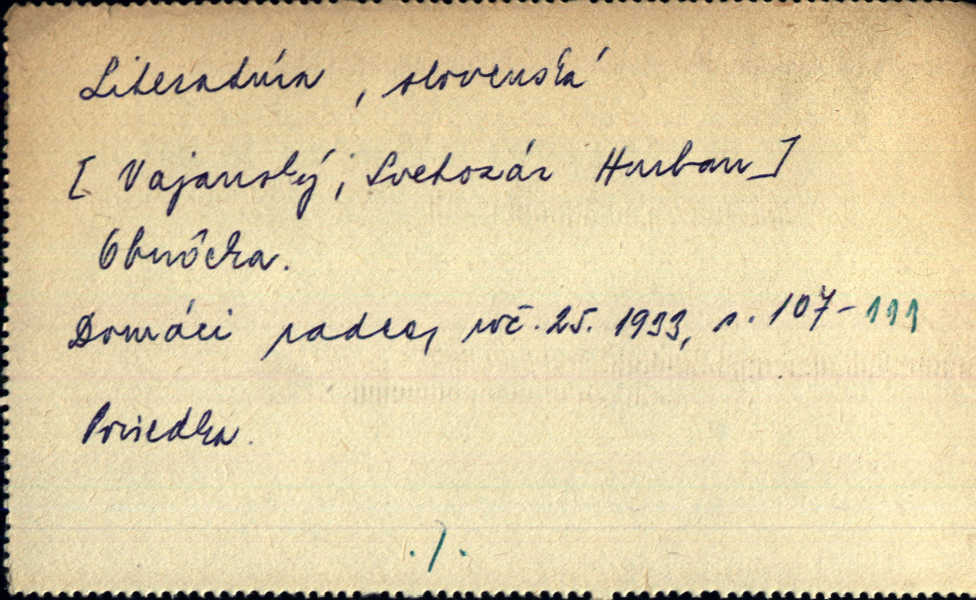 Literatúra, slovenská
[Vajanský, Svetozár Hurban]
Obročka.
Domáci radca, roč. 25. 1933, s. 107-111
Poviedka.
./.